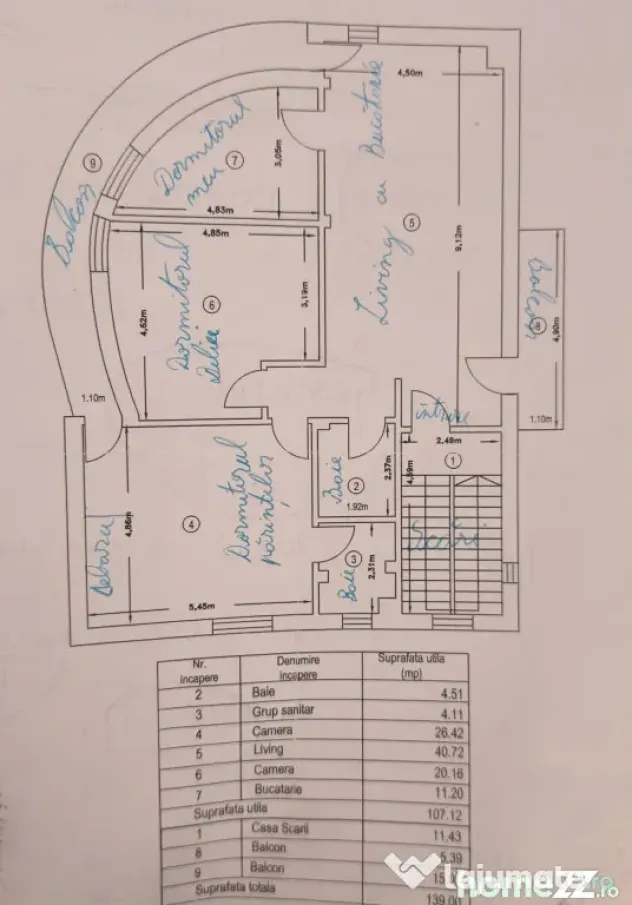 4,50m
Living cu Bucătărie
5
9,12m
Dormitorul
meu
7
3,05m
4,83m
9
Balcon
4,85m
Dormitorul
Deliei
6
4,62m
3,19m
Balcon
8
4,90m
1.10m
1.10m
intrare
2,49m
1
4,59m
Scări
Baie
2
2,37m
1.92m
Baie
3
2,31m
Dormitorul
părinților
4
4,86m
Debara
5,45m
Nr. incapere Denumire incapere Suprafata utila (mp)
2 Baie 4.51
3 Grup sanitar 4.11
4 Camera 26.42
5 Living 40.72
6 Camera 20.16
7 Bucatarie 11.20
Suprafata utila 107.12
1 Casa Scarii 11.43
8 Balcon 5.39
9 Balcon
Suprafata totala 139.00
lajumate.ro
homezz.ro